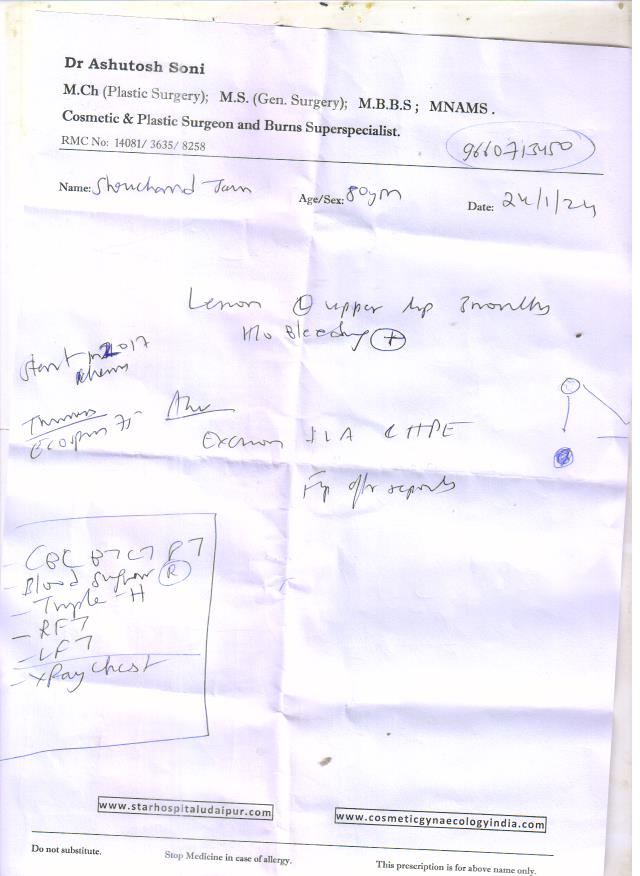 Dr Ashutosh Soni
M.Ch (Plastic Surgery); M.S. (Gen. Surgery); M.B.B.S ; MNAMS .
Cosmetic & Plastic Surgeon and Burns Superspecialist.
RMC No: 14081/ 3635/ 8258
9660713450
Name: Jain
Age/Sex: 80ym
Date: 24/1/24
Lesion (L) upper lip 3months
H/o Bleeding (+)
Stent in 2017
Ecosprin 75
Adv
Excision LA C HPE
F/p reports
- CBC BT CT PT
- Blood Sugar (R)
- Triple - H
- RFT
- LFT
- XRay Chest
www.starhospitaludaipur.com
www.cosmeticgynaecologyindia.com
Do not substitute.
Stop Medicine in case of allergy.
This prescription is for above name only.